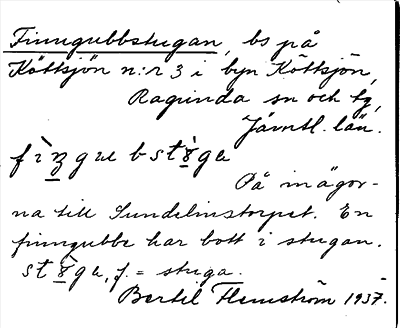 Finngubbstugan, bs på
Köttsjön n:r 3 i byn Köttsjön,
Ragunda sn och tg,
Jämtl. län.
På inägor-
na till Sundelinstorpet. En
finngubbe har bott i stugan.
= stuga.
Bertil Flemström 1937.